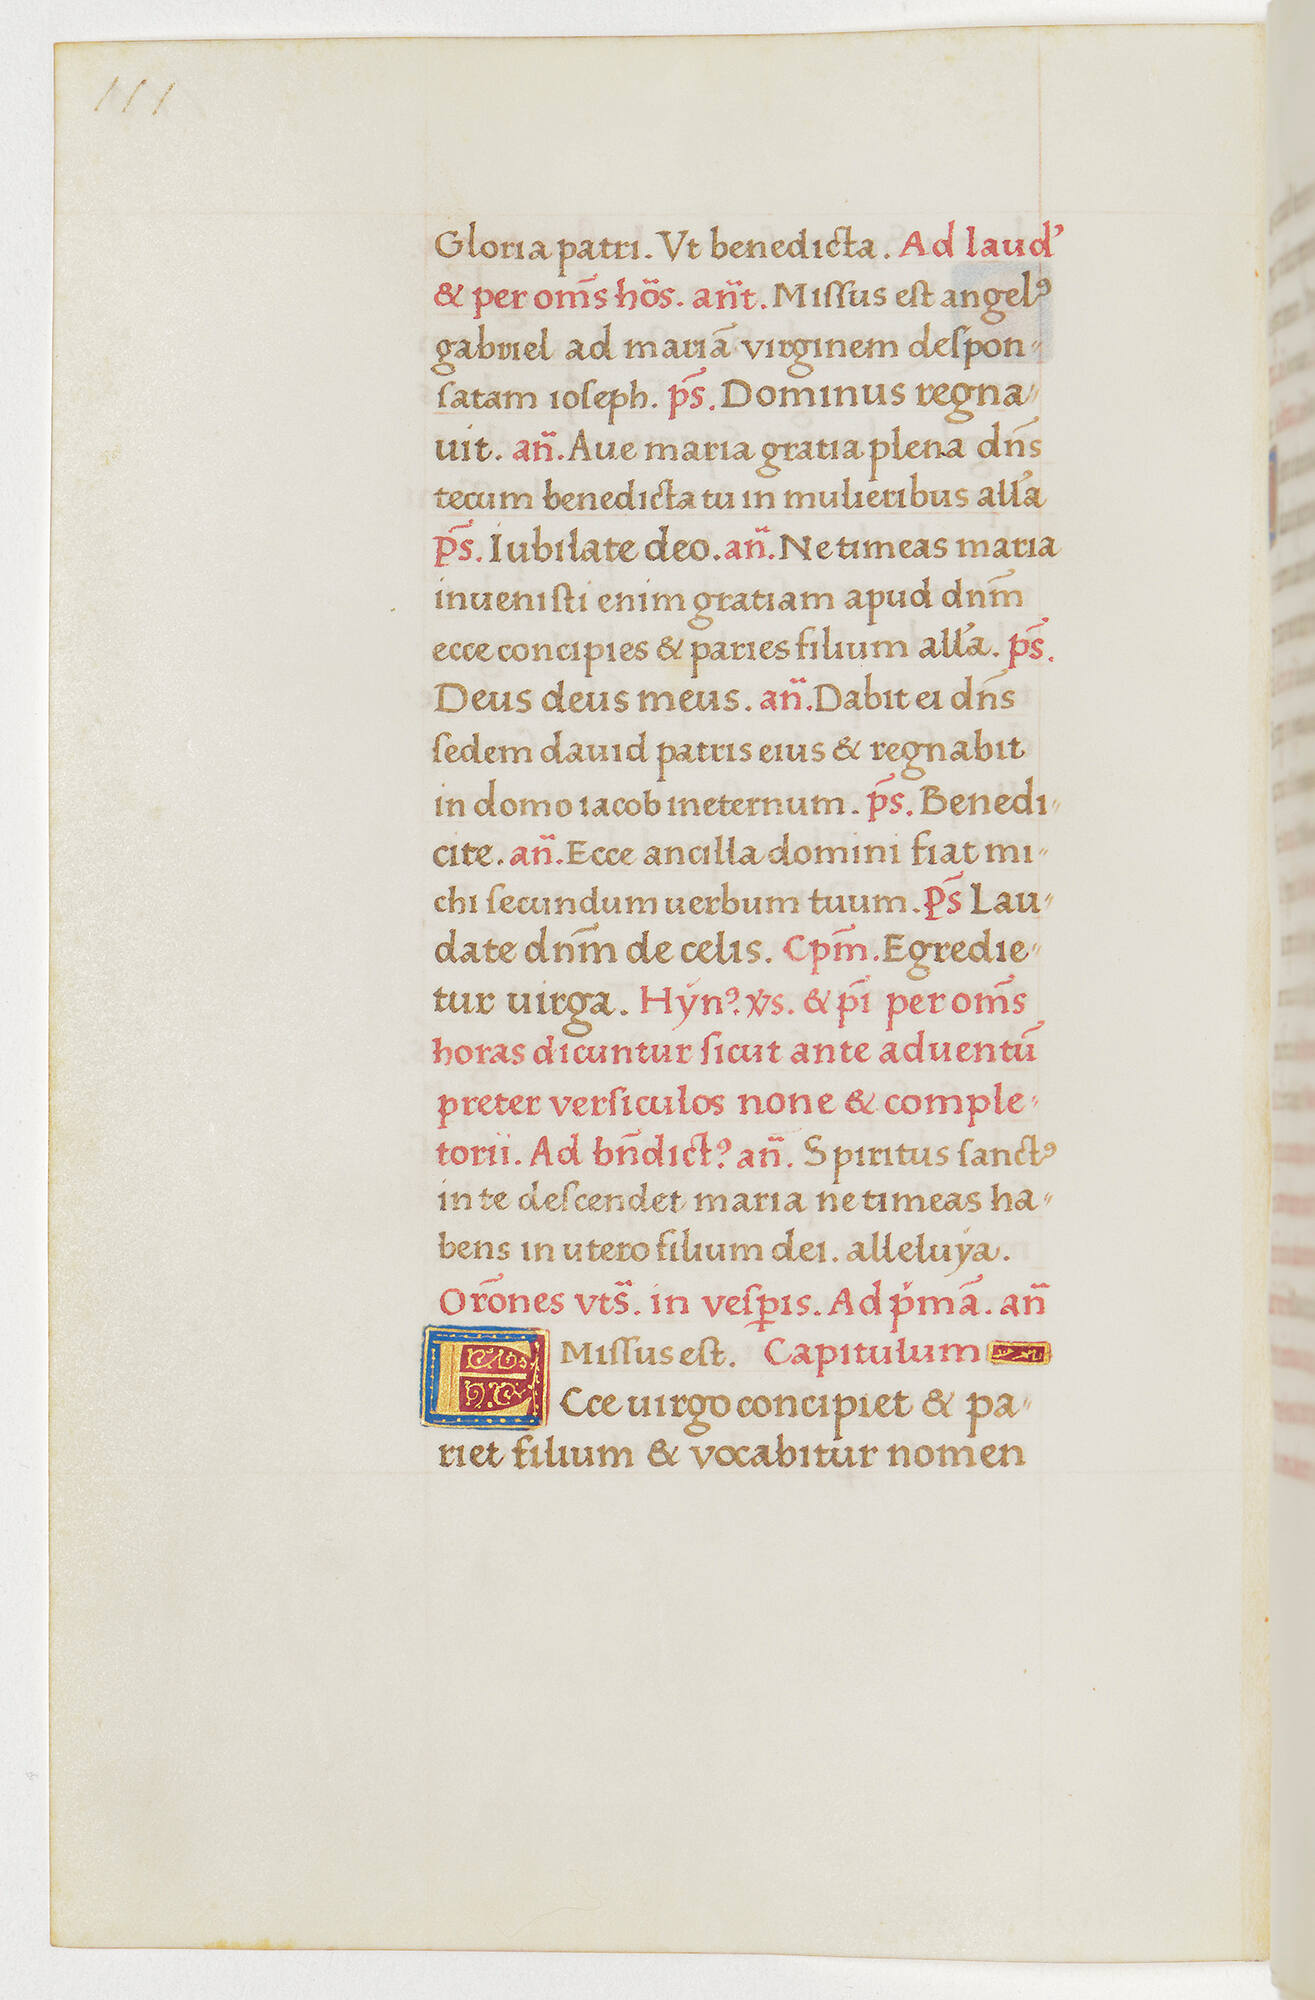 111
Gloria patri. Vt benedicta. Ad laud’
& per om̄s hōs. an̄t. Miſſus eſt angelꝰ
gabriel ad mariā virginem deſpon-
ſatam ioſeph. p̄s. Dominus regna-
uit. an̄. Aue maria gratia plena dn̄s
tecum benedicta tu in mulieribus all̄a
p̄s. Iubilate deo. an̄. Ne timeas maria
inueniſti enim gratiam apud dn̄m
ecce concipies & paries filium all̄a. p̄s.
Deus deus meus. an̄. Dabit ei dn̄s
ſedem dauid patris eius & regnabit
in domo iacob ineternum. p̄s. Benedi-
cite. an̄. Ecce ancilla domini fiat mi-
chi ſecundum uerbum tuum. P̄s Lau-
date dn̄m de celis. Cpm̄. Egredie-
tur uirga. Hẏnꝰ. v̄s. & p̄i per om̄s
horas dicuntur ſicut ante aduentū
preter verſiculos none & comple-
torii. Ad bn̄dictꝰ an̄. Spiritus ſanctꝰ
in te deſcendet maria ne timeas ha-
bens in utero filium dei. alleluẏa.
Orōnes vts̄. in veſꝑis. Ad pͥmā. an̄
Miſſus eſt. Capitulum
Ecce uirgo concipiet & pa-
riet filium & vocabitur nomen